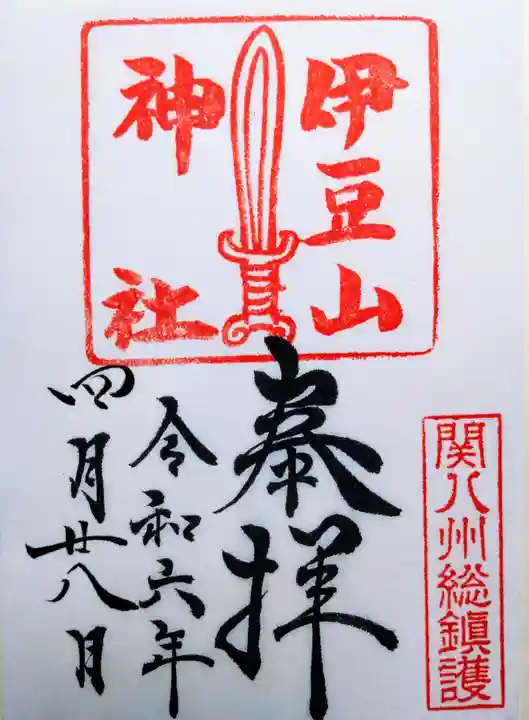 伊豆山
神社
関八州総鎮護
奉拝
令和六年
四月廿八日